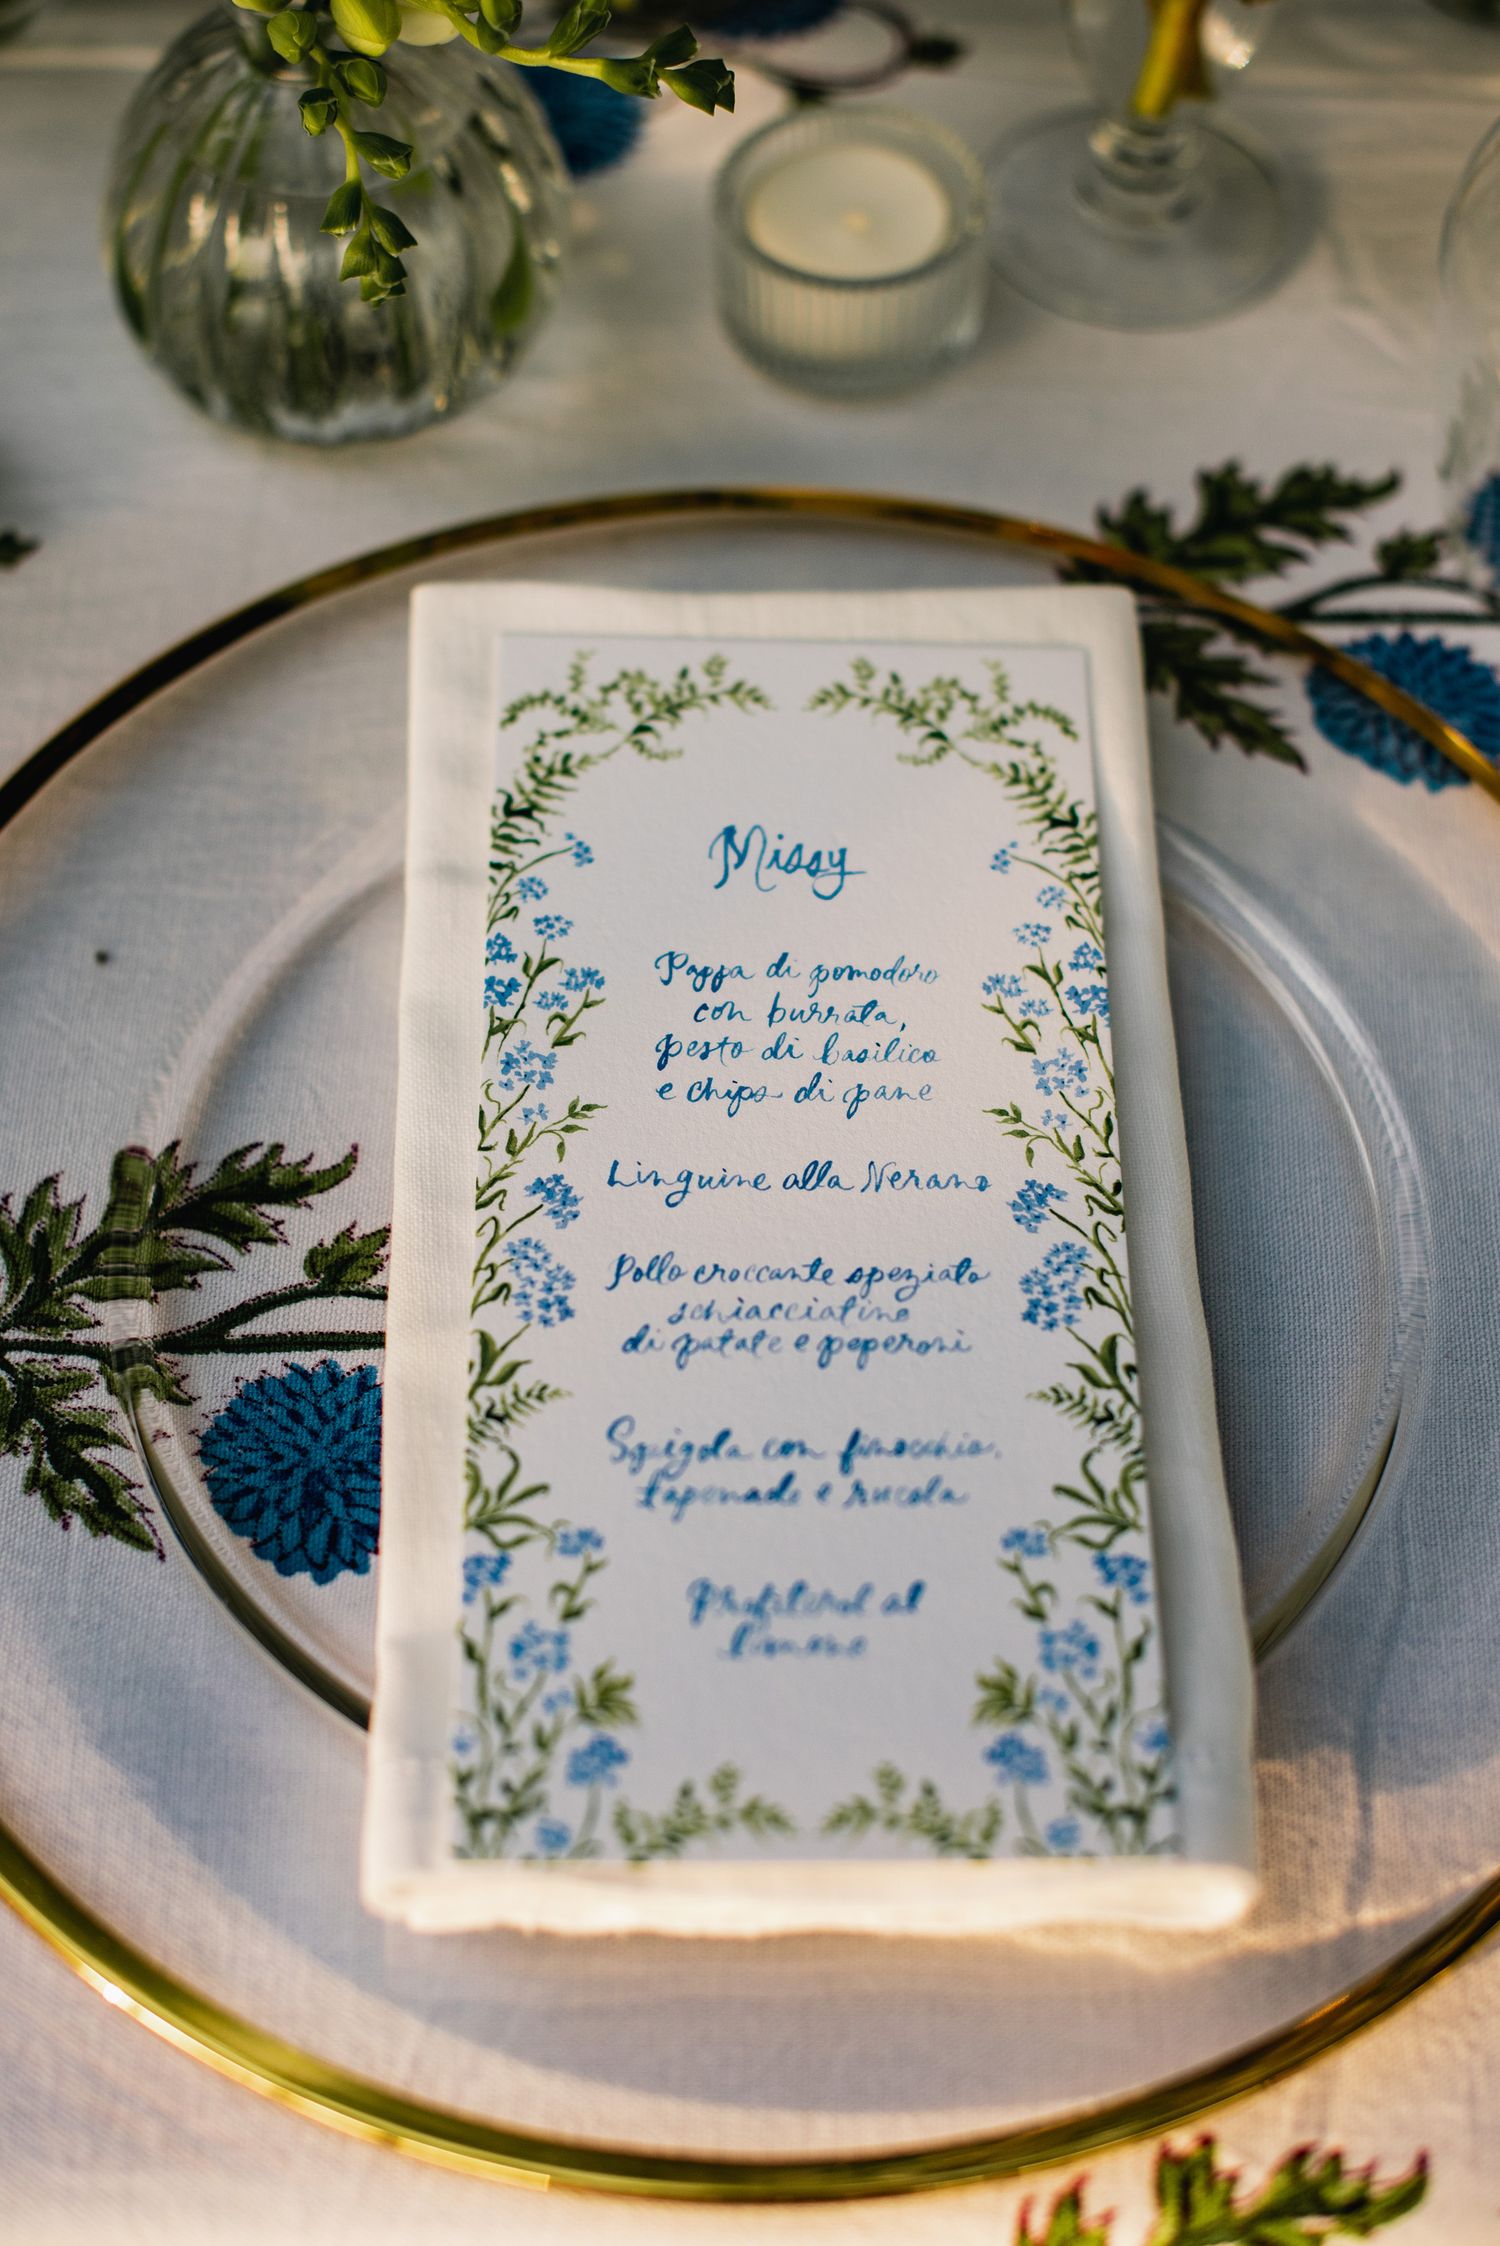 Missy
Pappa di pomodoro
con burrata,
pesto di basilico
e chips di pane
Linguine alla Nerano
Pollo croccante speziato
schiacciatine
di patate e peperoni
Spigola con finocchio,
tapenade e rucola
Profiterol al
limone